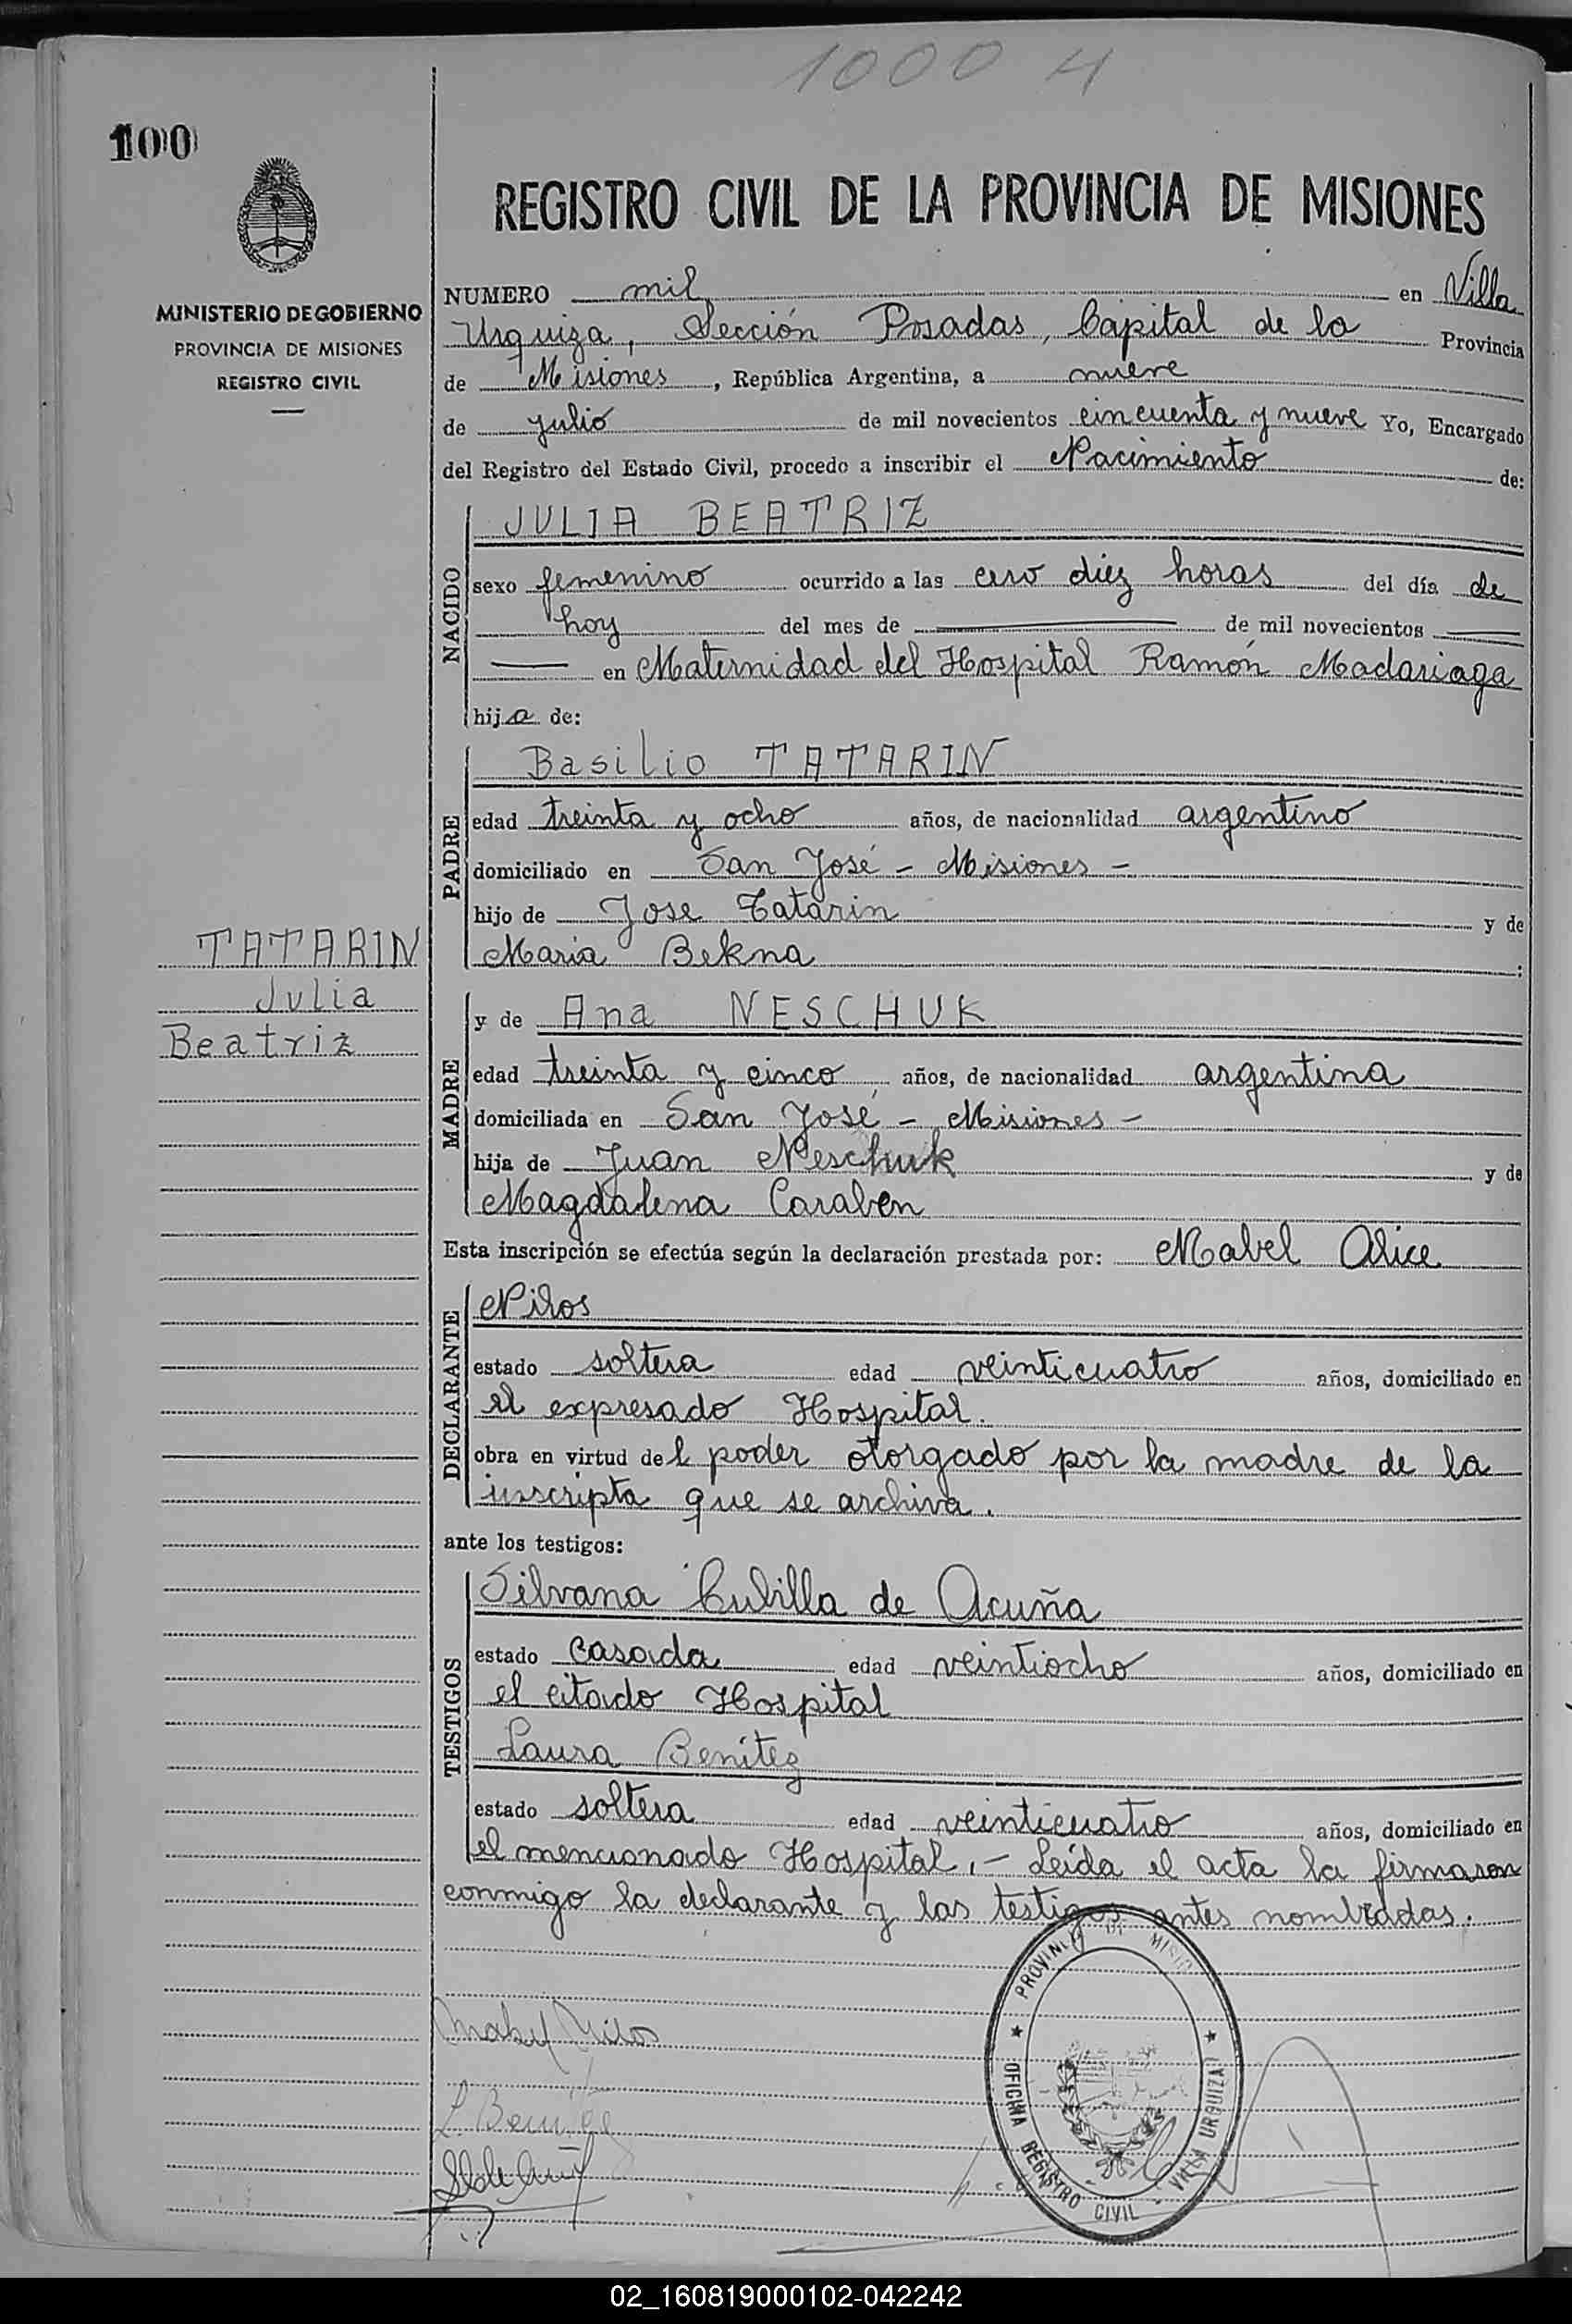 1000 H
100
MINISTERIO DE GOBIERNO
PROVINCIA DE MISIONES
REGISTRO CIVIL
REGISTRO CIVIL DE LA PROVINCIA DE MISIONES
NUMERO mil en Villa
Urquiza, Sección Posadas, Capital de la Provincia
de Misiones, República Argentina, a nueve
de julio de mil novecientos cincuenta y nueve Yo, Encargado
del Registro del Estado Civil, procedo a inscribir el Nacimiento de:
NACIDO
JULIA BEATRIZ
sexo femenino ocurrido a las cero diez horas del día de
hoy del mes de — de mil novecientos —
— en Maternidad del Hospital Ramón Madariaga
hija de:
PADRE
Basilio TATARIN
edad treinta y ocho años, de nacionalidad argentino
domiciliado en San José - Misiones -
hijo de Jose Tatarin y de
Maria Bekna :
TATARIN
Julia
Beatriz
MADRE
y de Ana NESCHUK
edad treinta y cinco años, de nacionalidad argentina
domiciliada en San José - Misiones -
hija de Juan Neschuk y de
Magdalena Caraben
Esta inscripción se efectúa según la declaración prestada por: Mabel Alice
DECLARANTE
Niros
estado soltera edad veinticuatro años, domiciliado en
el expresado Hospital.
obra en virtud del poder otorgado por la madre de la
inscripta que se archiva.
ante los testigos:
TESTIGOS
Silvana Cubilla de Acuña
estado casada edad veintiocho años, domiciliado en
el citado Hospital
Laura Benítez
estado soltera edad veinticuatro años, domiciliado en
el mencionado Hospital.- Leída el acta la firmaron
conmigo la declarante y las testigos antes nombradas.
PROVINCIA DE MISIONES
OFICINA REGISTRO CIVIL - VILLA URQUIZA
L. Benitez
02_160819000102-042242